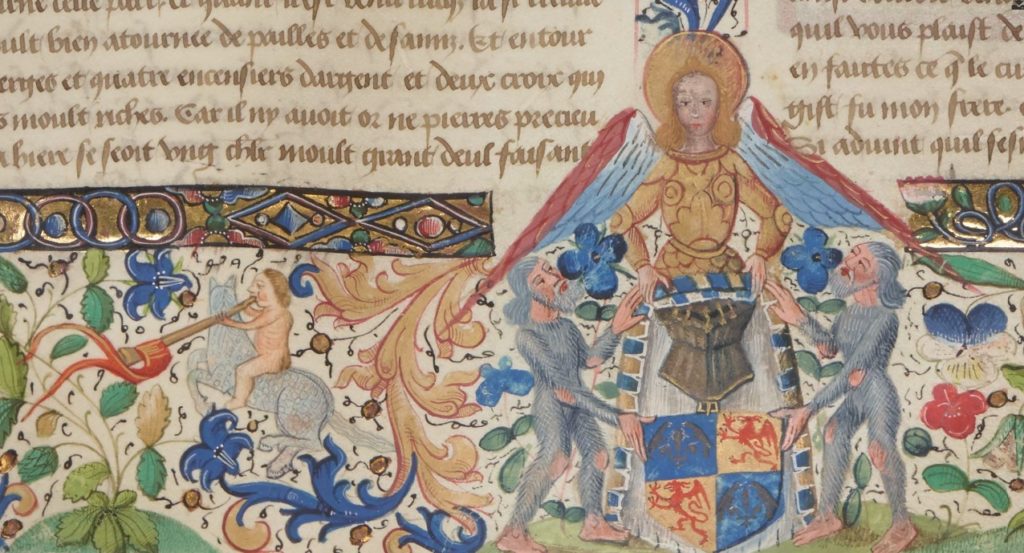 celle part. et quant
oult bien atournee de pailles et de samiz. Et entour
erges et quatre encensiers dargent et deux croix qui
s moult riches. Car il ny auoit or ne pierres precieu
a biere se seoit vng chlr moult grant deul faisant
quil vous plaist de
en faictes ce q̄ le cu
gist fu mon frere.
Si aduint quil